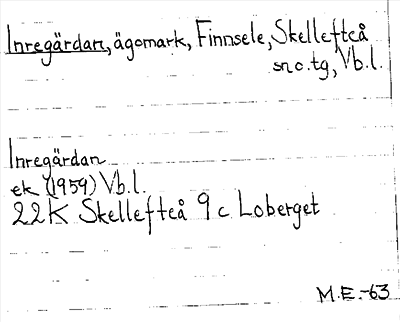 Inregärdan, ägomark, Finnsele, Skellefteå
sn o. tg, Vb.l.
Inregärdan
ek (1959) Vb.l.
22K Skellefteå 9 c Loberget
M.E.-63